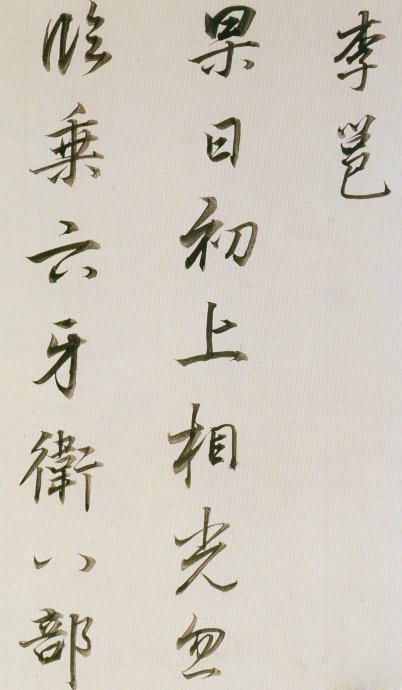 李邕
杲日初上相光忽
臨乘六牙衛八部